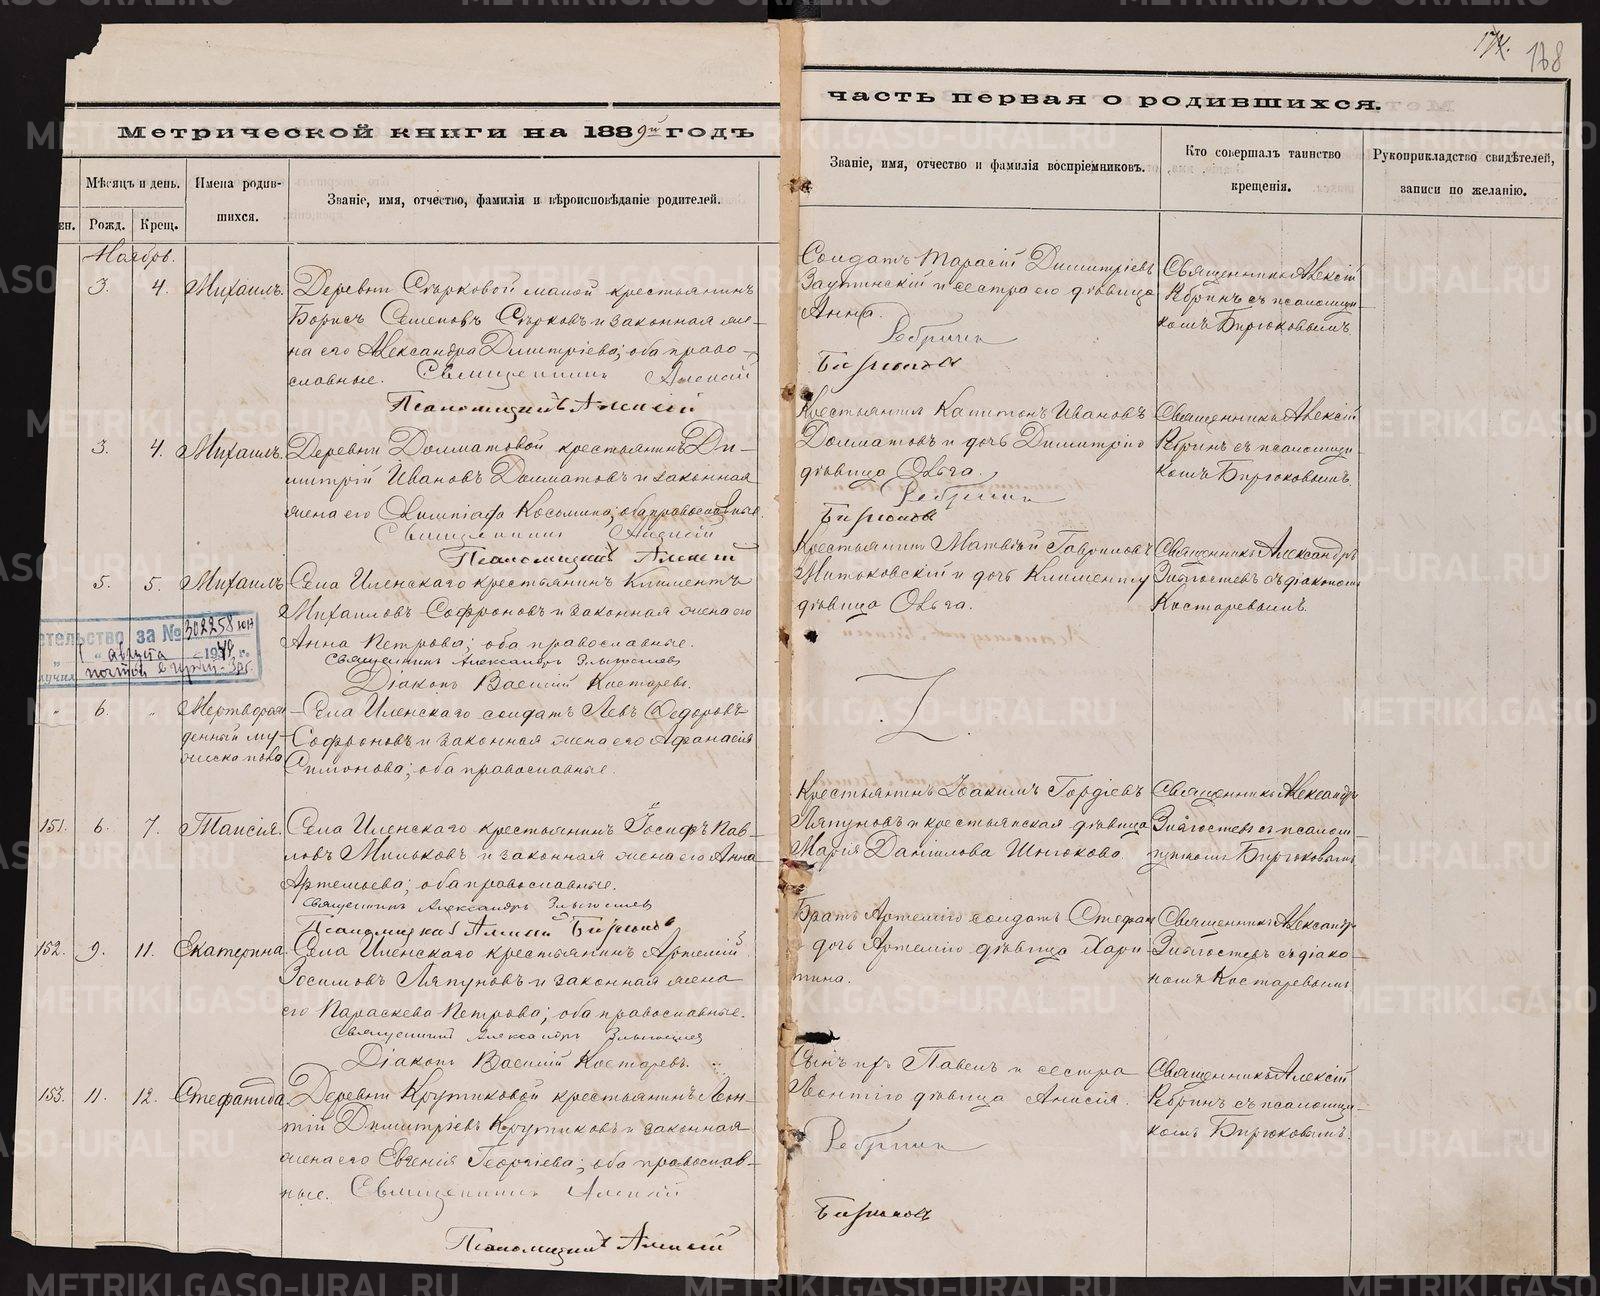 174.
168
Метрической книги на 1889й годъ
часть первая о родившихся.
Мѣсяцъ и день.
Имена родив-
шихся.
Званіе, имя, отчество, фамилія и вѣроисповѣданіе родителей.
ен.
Рожд.
Крещ.
Званіе, имя, отчество и фамилія воспріемниковъ.
Кто совершалъ таинство
крещенія.
Рукоприкладство свидѣтелей,
записи по желанію.
Ноябрь.
3.
4.
Михаилъ.
Деревни малой крестьянинъ
Борисъ Семеновъ и законная же-
на его Александра Димитріева; оба право-
славные. Священникъ Алексій
Псаломщикъ Алексій
Солдатъ Тарасій Димитріевъ
и сестра его дѣвица
Анна.
Ребринъ
Бирюковъ
Священникъ Алексій
Ребринъ съ псаломщи-
комъ Бирюковымъ.
3.
4.
Михаилъ.
Деревни Долматовой крестьянинъ Ди-
митрій Ивановъ Долматовъ и законная
жена его Олимпіада Космина; оба православные.
Священникъ Алексій
Псаломщикъ Алексій
Крестьянинъ Капитонъ Ивановъ
Долматовъ и дочь Димитрія
дѣвица Ольга.
Ребринъ
Бирюковъ
Священникъ Алексій
Ребринъ съ псаломщи-
комъ Бирюковымъ.
5.
5.
Михаилъ
Села Иленскаго крестьянинъ Климентъ
Михаиловъ Софроновъ и законная жена его
Анна Петрова; оба православные.
Священникъ Александръ Злыгостевъ
Діаконъ Василій Костаревъ.
Крестьянинъ Матвѣй Гавриловъ
Митьковскій и дочь Климента
дѣвица Ольга.
Священникъ Александръ
Злыгостевъ съ діакономъ
Костаревымъ.
етельство за № 302258
1 августа 19 г.
почтой
"
6.
"
Мертворож-
денный му-
жеска пола
Села Иленскаго солдатъ Левъ Ѳедоровъ
Софроновъ и законная жена его Афанасія
Симонова; оба православные.
Z.
151.
6.
7.
Таисія.
Села Иленскаго крестьянинъ Іосифъ Пав-
ловъ Мильковъ и законная жена его Анна
Артемьева; оба православные.
Священникъ Александръ Злыгостевъ
Псаломщикъ Алексій Бирюковъ
Крестьянинъ Іоакимъ Гордіевъ
Ляпуновъ и крестьянская дѣвица
Марія Даніилова Шнюкова.
Священникъ Александръ
Злыгостевъ съ псалом-
щикомъ Бирюковымъ
152.
9.
11.
Екатерина.
Села Иленскаго крестьянинъ Артемій
Зосимовъ Ляпуновъ и законная жена
его Параскева Петрова; оба православные.
Священникъ Александръ Злыгостевъ
Діаконъ Василій Костаревъ.
Братъ Артемія солдатъ Стефанъ
дочь Артемія дѣвица Хари-
тина.
Священникъ Александръ
Злыгостевъ съ діако-
номъ Костаревымъ
153.
11.
12.
Стефанида.
Деревни Крутиковой крестьянинъ Леон-
тій Димитріевъ Крутиковъ и законная
жена его Евгенія Георгіева; оба православ-
ные. Священникъ Алексій
Псаломщикъ Алексій
Сынъ Павелъ и сестра
Леонтія дѣвица Анисія.
Ребринъ
Бирюковъ
Священникъ Алексій
Ребринъ съ псаломщи-
комъ Бирюковымъ.
METRIKI.GASO-URAL.RU